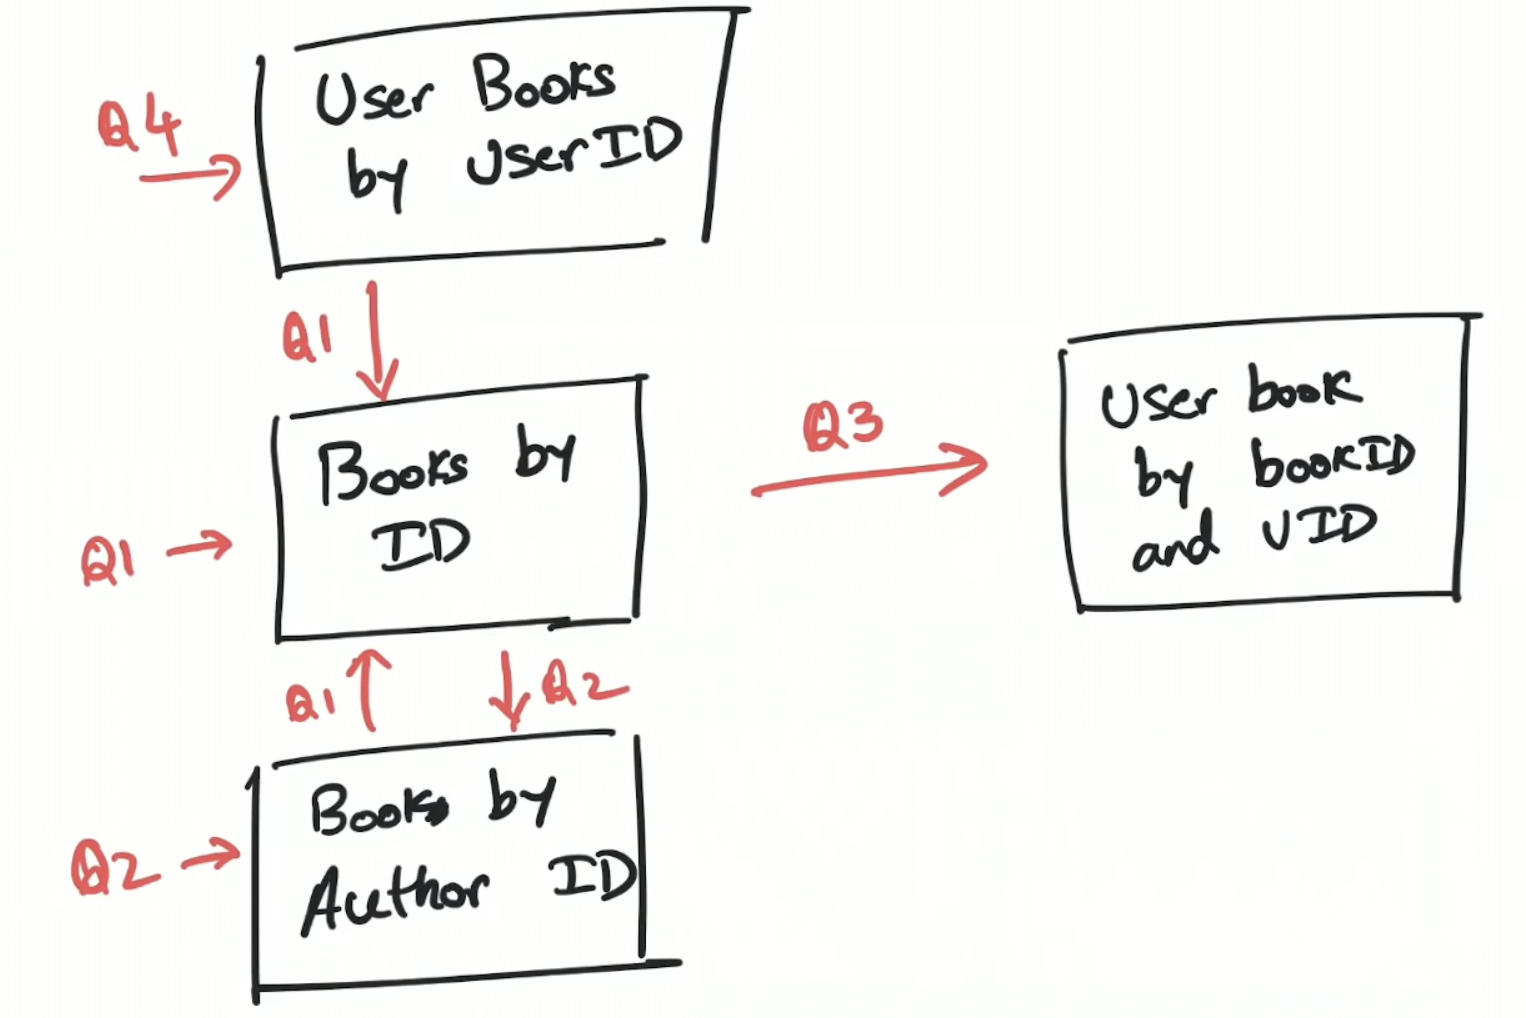 User Books
by UserID
Q4
Q1
Books by
ID
Q1
Q3
User book
by bookID
and UID
Q1
Q2
Books by
Author ID
Q2